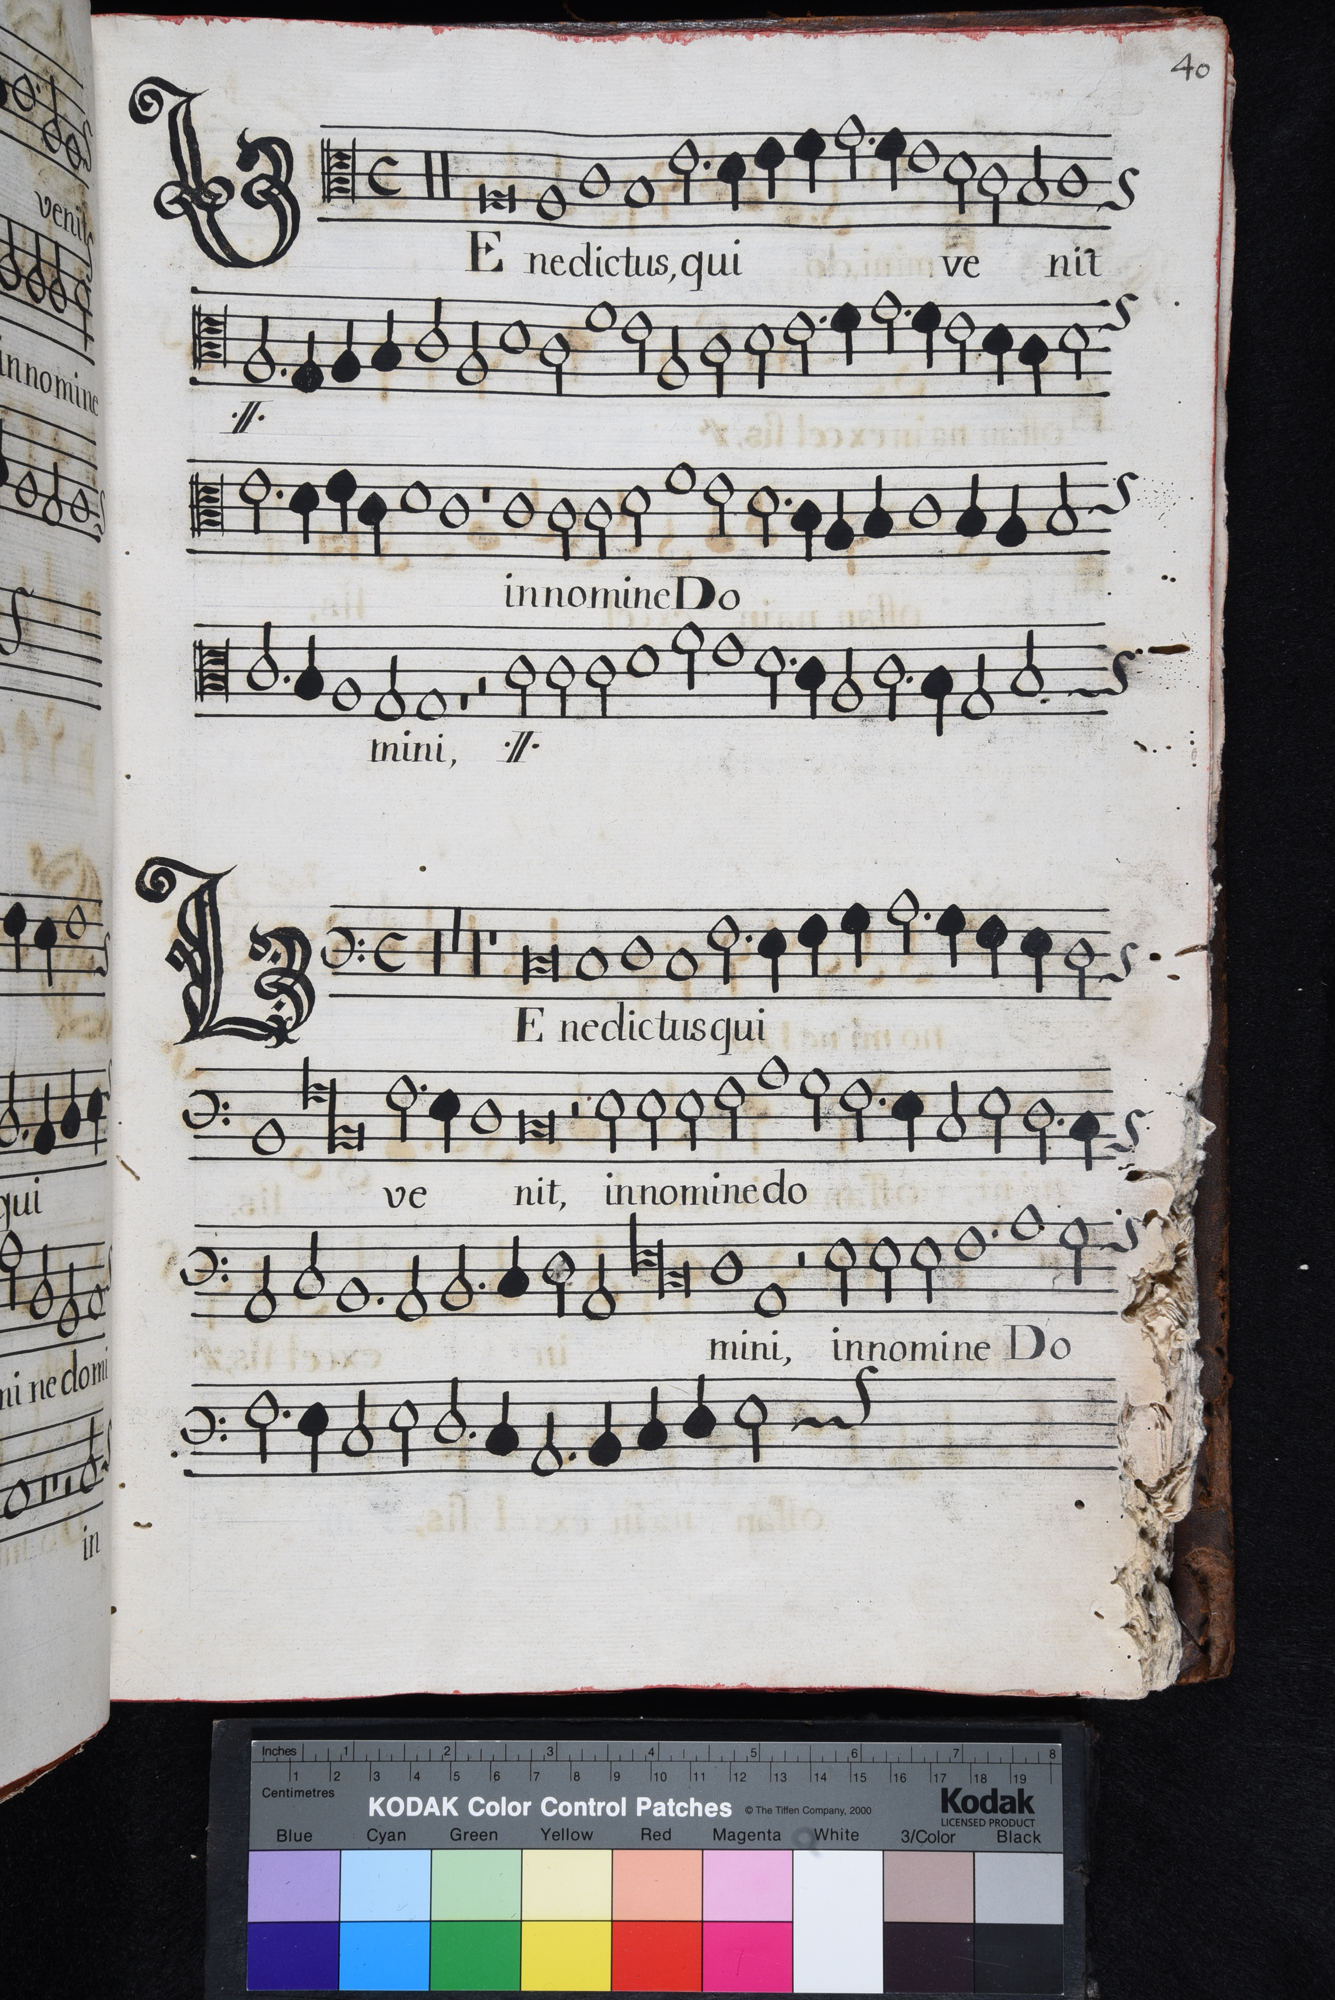 40
BEnedictus, qui ve nit
·//·
in nomine Do
mini, ·//·
BEnedictus qui
ve nit, in nomine do
mini, in nomine Do
venit
in nomine
qui
mi ne domi
in
Inches 1 2 3 4 5 6 7 8
Centimetres 1 2 3 4 5 6 7 8 9 10 11 12 13 14 15 16 17 18 19
KODAK Color Control Patches © The Tiffen Company, 2000 Kodak
LICENSED PRODUCT
Blue Cyan Green Yellow Red Magenta White 3/Color Black